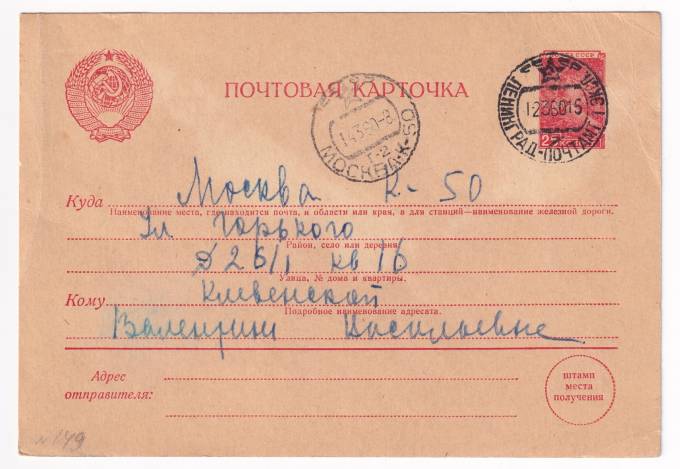 ПОЧТОВАЯ КАРТОЧКА
МОСКВА-К-50
14360-8
Г-2
СССР
ЛЕНИНГРАД-ПОЧТАМТ
1236015
25
Куда Москва К-50
Наименование места, где находится почта, и области или края, а для станций—наименование железной дороги.
Ул Горького
Район, село или деревня.
д 26/1 кв 16
Улица, № дома и квартиры.
Кому Клевенской
Подробное наименование адресата.
Валентине Васильевне
Адрес
отправителя:
штамп
места
получения
№ 149